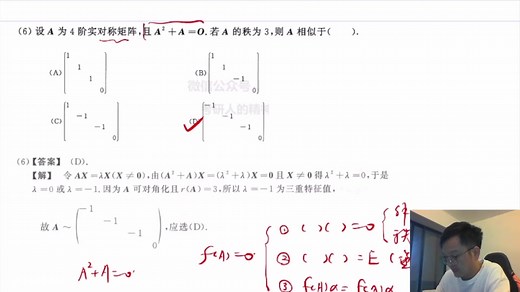 (6) 设 A 为 4 阶实对称矩阵,且 A² + A = O. 若 A 的秩为 3,则 A 相似于( ).
(A) [1 1 1 0] (B) [1 1 -1 0]
微信公众号
考研人的精神
(C) [1 -1 -1 0] (D) [-1 -1 -1 0]
(6)【答案】 (D).
【解】 令 AX = λX(X ≠ 0),由(A² + A)X = (λ² + λ)X = 0 且 X ≠ 0 得 λ² + λ = 0,于是
λ = 0 或 λ = -1. 因为 A 可对角化且 r(A) = 3,所以 λ = -1 为三重特征值,
故 A ~ (-1 -1 -1 0),应选(D).
A²+A=0
f(A)=0
① ( )( )=0
② ( )( )=E
③ f(A)α=f(λ)α